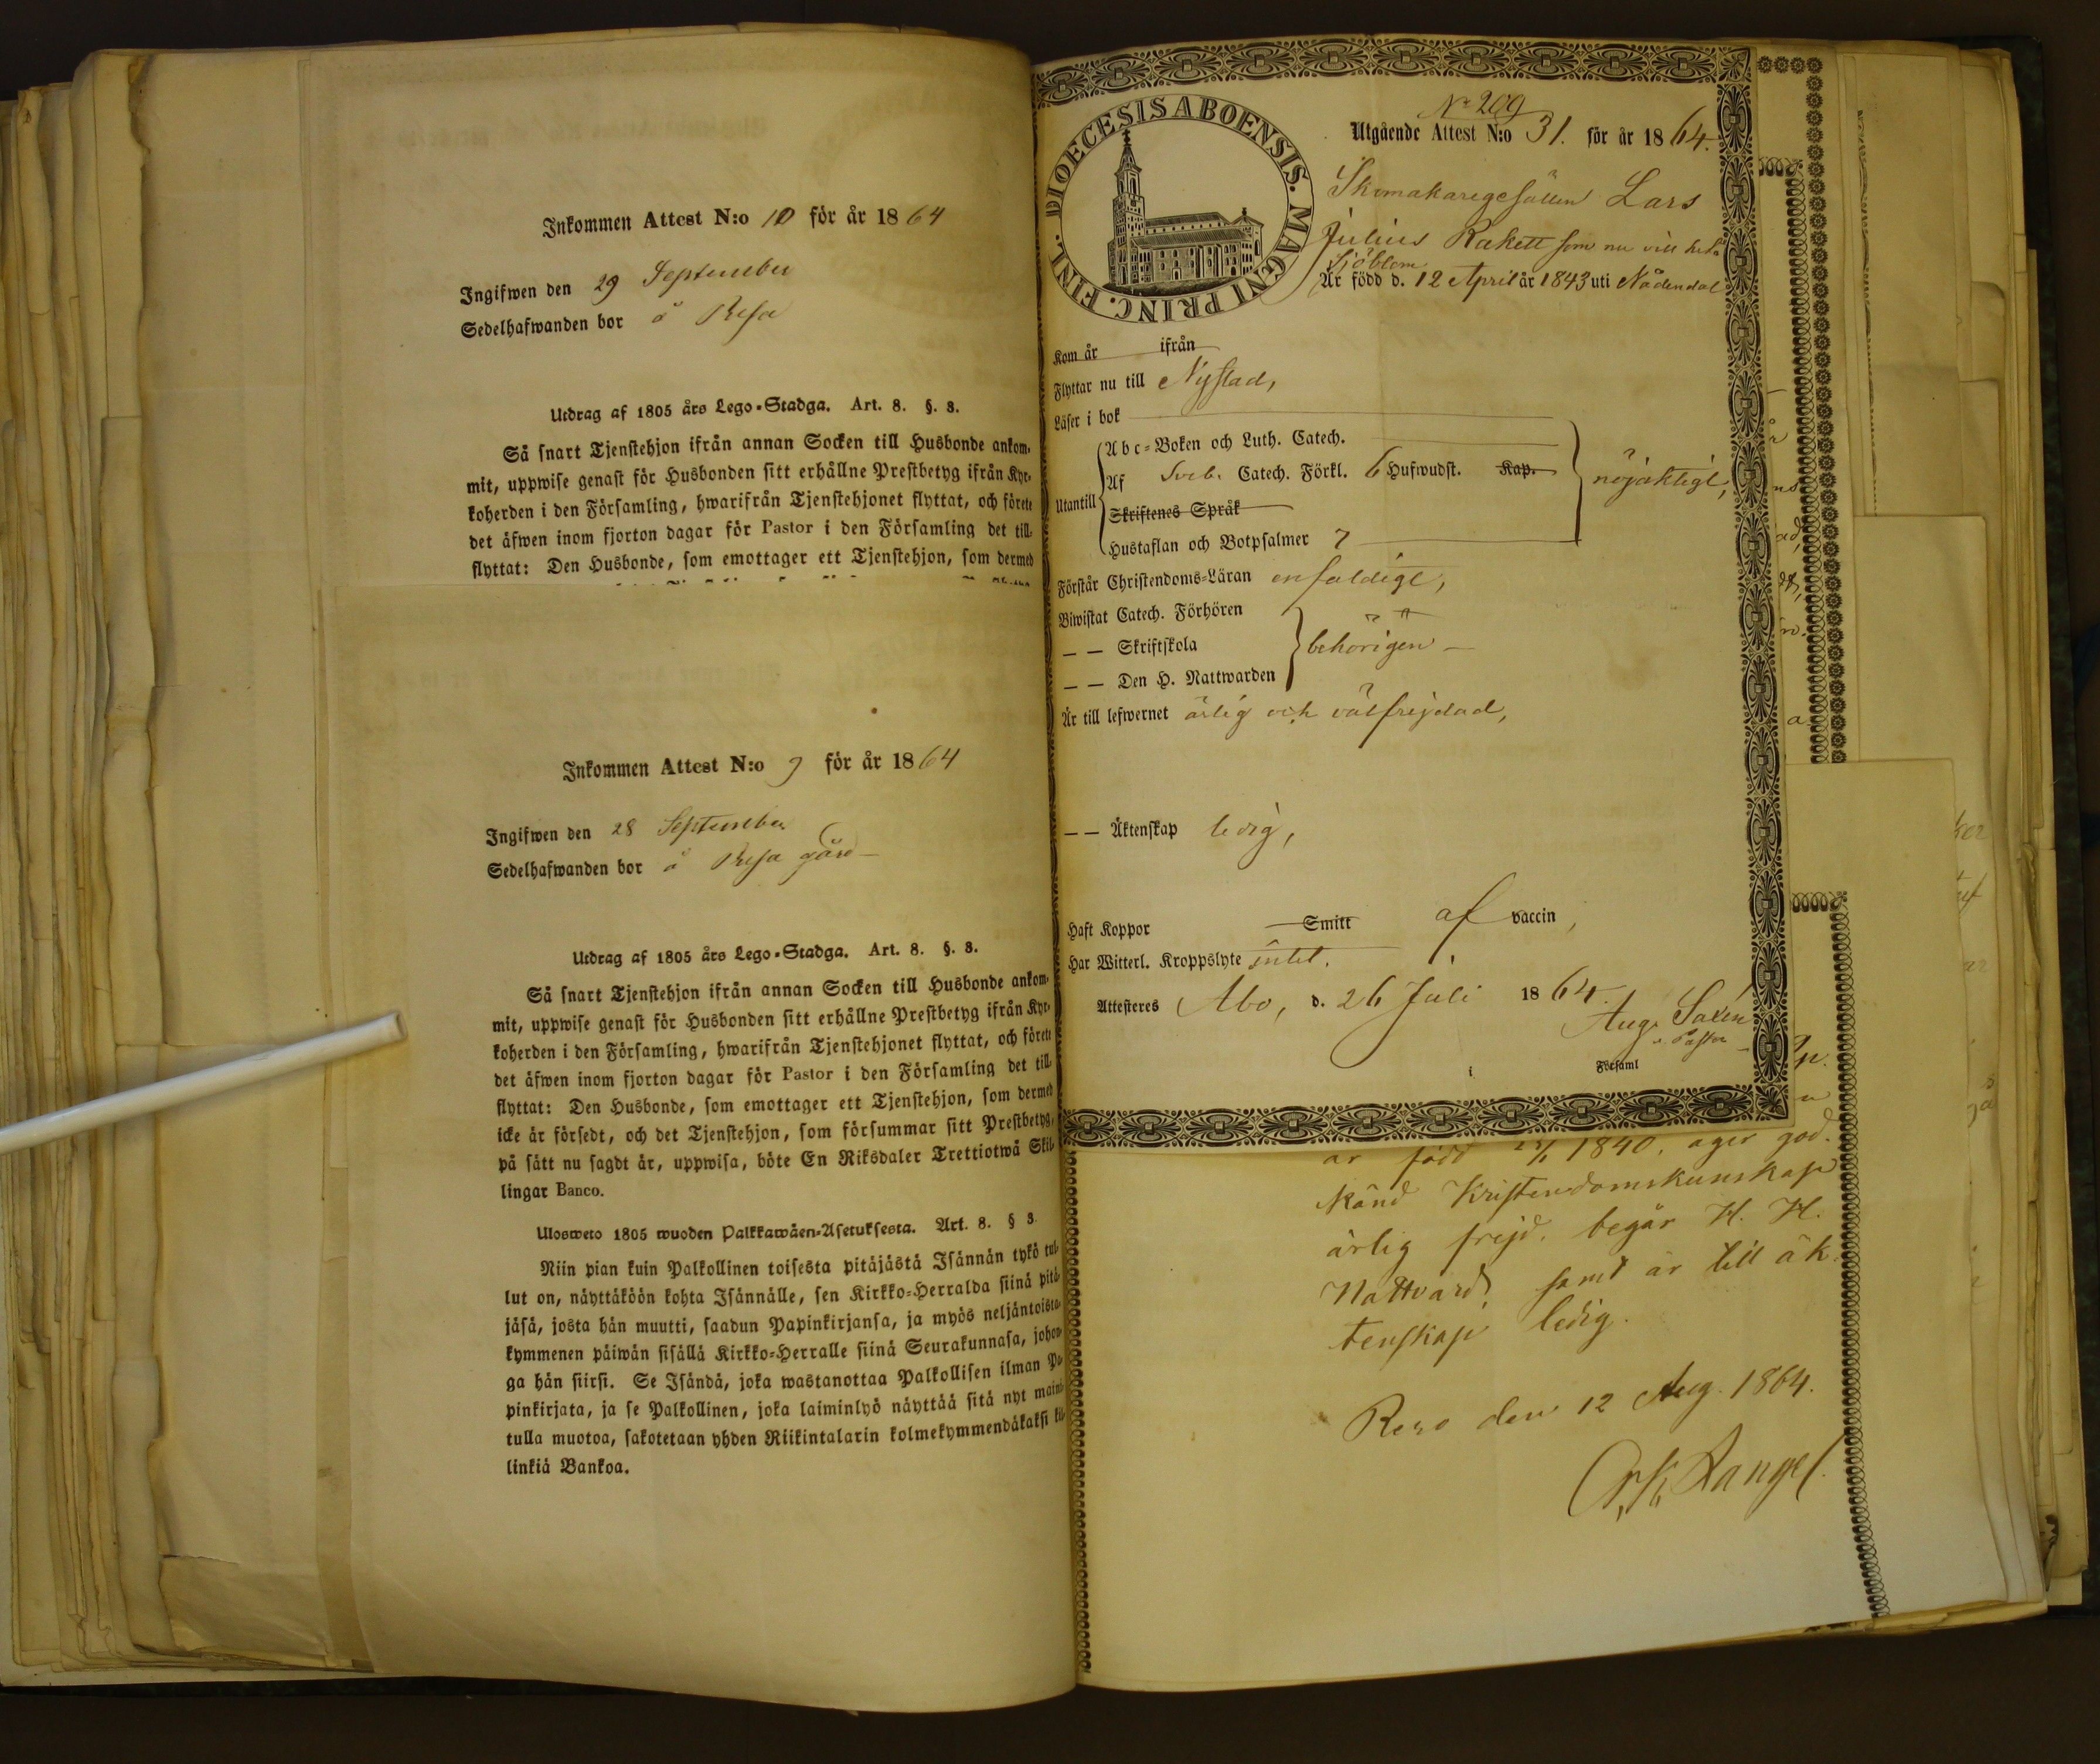 Inkommen Attest N:o 10 för år 1864
Ingifwen den 29 September
Sedelhafwanden bor å Resa
Utdrag af 1805 års Lego-Stadga. Art. 8. §. 8.
Så snart Tjenstehjon ifrån annan Socken till Husbonde ankom-
mit, uppwise genast för Husbonden sitt erhållne Prestbetyg ifrån Kyr-
koherden i den Församling, hwarifrån Tjenstehjonet flyttat, och förete
det äfwen inom fjorton dagar för Pastor i den Församling det till-
flyttat: Den Husbonde, som emottager ett Tjenstehjon, som dermed
Inkommen Attest N:o 9 för år 1864
Ingifwen den 28 September
Sedelhafwanden bor å Resa gård
Utdrag af 1805 års Lego-Stadga. Art. 8. §. 8.
Så snart Tjenstehjon ifrån annan Socken till Husbonde ankom-
mit, uppwise genast för Husbonden sitt erhållne Prestbetyg ifrån Kyr-
koherden i den Församling, hwarifrån Tjenstehjonet flyttat, och förete
det äfwen inom fjorton dagar för Pastor i den Församling det till-
flyttat: Den Husbonde, som emottager ett Tjenstehjon, som dermed
icke är försedt, och det Tjenstehjon, som försummar sitt Prestbetyg,
på sätt nu sagdt är, uppwisa, böte En Riksdaler Trettiotwå Skil-
lingar Banco.
Ulosweto 1805 wuoden Palkkawäen-Asetuksesta. Art. 8. § 8.
Niin pian kuin Palkollinen toisesta pitäjästä Isännän tykö tul-
lut on, näyttäköön kohta Isännälle, sen Kirkko-Herralda siinä pitä-
jäsä, josta hän muutti, saadun Papinkirjansa, ja myös neljäntoista-
kymmenen päiwän sisällä Kirkko-Herralle siinä Seurakunnasa, johon-
ga hän siirsi. Se Isändä, joka wastanottaa Palkollisen ilman Pa-
pinkirjata, ja se Palkollinen, joka laiminlyö näyttää sitä nyt maini-
tulla muotoa, sakotetaan yhden Riikintalarin kolmekymmendäkaksi kil-
linkiä Bankoa.
DIOECESIS ABOENSIS. MAGNI PRINC. FINL.
N:o 209
Utgående Attest N:o 31. för år 1864.
Skomakaregesällen Lars
Julius Rakett som nu vill heta
Sjöblom
Är född d. 12 April år 1843 uti Nådendal
Kom år ifrån
Flyttar nu till Nystad,
Läser i bok
Utantill
Abc-Boken och Luth. Catech.
Af Sveb. Catech. Förkl. 6 Hufwudst. Kap.
nöjaktigt,
Skriftenes Språk
Hustaflan och Botpsalmer 7
Förstår Christendoms-Läran enfaldigt,
Biwistat Catech. Förhören
— — Skriftskola
behörigen —
— — Den H. Nattwarden
Är till lefwernet ärlig och välfrejdad,
— — Äktenskap ledig,
Haft Koppor Smitt af vaccin,
Har Witterl. Kroppslyte intet.
Attesteres Åbo, d. 26 Juli 1864.
Aug. Saxén
Pastor
i Församl
är född 1840, äger god-
känd Kristendomskunskap
ärlig frejd, begår H. H.
Nattvard, samt är till äk-
tenskap ledig.
Reso den 12 Aug. 1864.